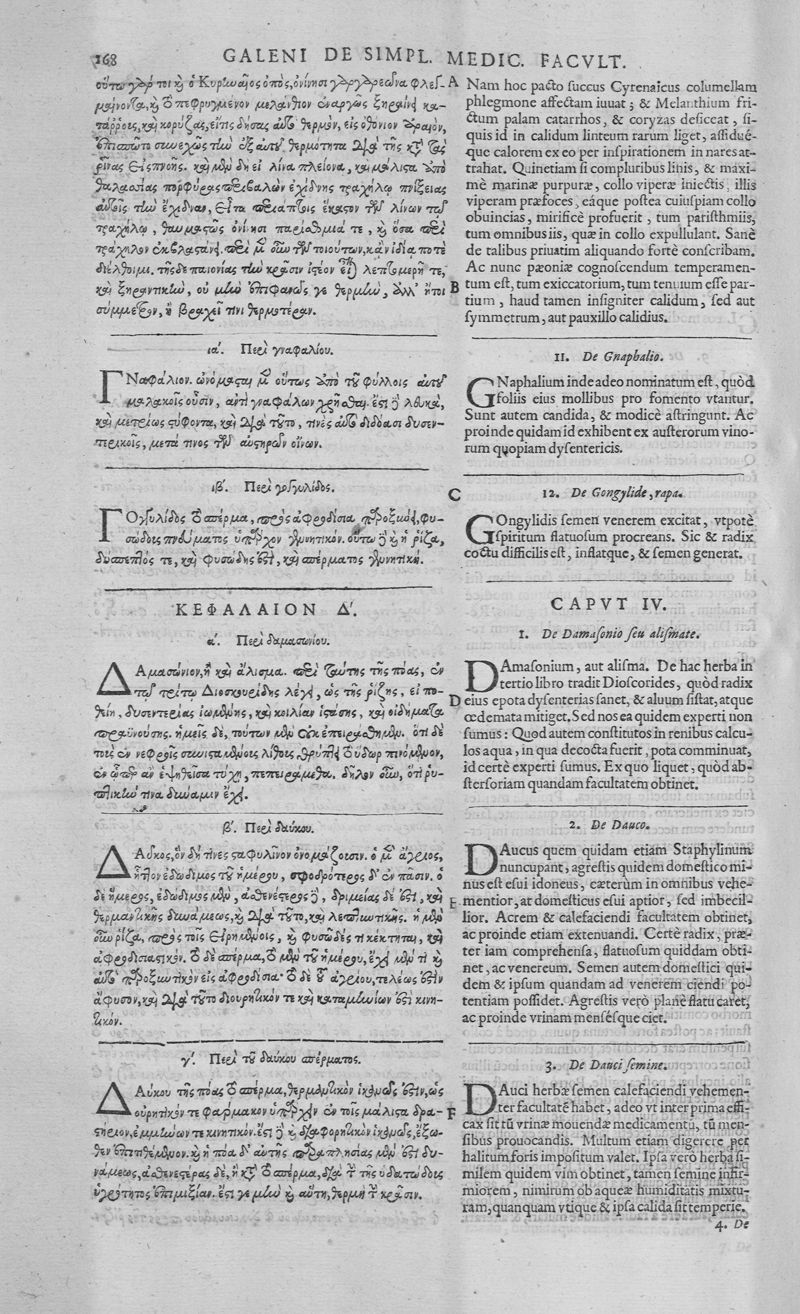 168 GALENI DE SIMPL. MEDIC. FACVLT.
οὕτω γάρ τοι καὶ ὁ Κυρηναῖος ὀπὸς, ὀνίνησι γαργαρεῶνα φλεγ-
μαίνοντα, καὶ τὸ πεφρυγμένον μελάνθιον ἐναργῶς ξηραίνει κα-
τάῤῥοις, καὶ κορύζας, εἴ τις δήσας αὐτὸ θερμὸν, εἰς ὀθόνιον ἀραιὸν,
συνεχῶς τὴν ἐξ αὐτοῦ θερμότητα διὰ τῆς κατὰ τὰς
ῥῖνας εἰσπνοῆς. καὶ μὲν δὴ εἰ λίνα πλείονα, καὶ μάλιστα ἀπὸ
θαλασσίας πορφύρας περιβαλὼν ἐχίδνης τραχήλῳ πνίξειας
αὐτοῖς τὴν ἔχιδναν, εἶτα περιάπτοις ἕκαστον τῶν λίνων τῷ
τραχήλῳ, θαυμαστῶς ὀνίνησι παρίσθμιά τε, καὶ ὅσα περὶ
τράχηλον ἐκβλαστάνει. περὶ μὲν οὖν τῶν τοιούτων, κἂν ἰδίᾳ ποτὲ
διέλθοιμι. τῆς δὲ παιονίας τὴν κρᾶσιν ἰστέον εἶναι λεπτομερῆ τε,
καὶ ξηραντικὴν, οὐ μὴν ἐπιφανῶς γε θερμὴν, ἀλλ' ἤτοι
σύμμετρον, ἢ βραχεῖ τινι θερμοτέραν.
ια΄. Περὶ γναφαλίου.
ΓΝαφάλιον. ὠνόμασται μὲν οὕτως ἀπὸ τοῦ φύλλοις αὐτοῦ
μαλακοῖς οὖσιν, ἀντὶ γναφάλων χρῆσθαι. ἔστι δὲ λευκὰ,
καὶ μετρίως στύφοντα, καὶ διὰ τοῦτο, τινὲς αὐτὸ διδόασι δυσεν-
τερικοῖς, μετά τινος τῶν αὐστηρῶν οἴνων.
ιβ΄. Περὶ γογγυλίδος.
ΓΟγγυλίδος τὸ σπέρμα, πρὸς ἀφροδίσια παροξύνει, φυ-
σώδους πνεύματος ὑπάρχον γεννητικόν. οὕτω δὲ καὶ ἡ ῥίζα,
δύσπεπτός τε, καὶ φυσώδης ἐστὶ, καὶ σπέρματος γεννητική.
ΚΕΦΑΛΑΙΟΝ Δ΄.
α΄. Περὶ δαμασωνίου.
ΔΑμασώνιον, ἢ καὶ ἄλισμα. περὶ ταύτης τῆς πόας, ἐν
τῷ τρίτῳ Διοσκουρίδης λέγει, ὡς τῆς ῥίζης, εἰ πο-
θείη, δυσεντερίας ἰωμένης, καὶ κοιλίαν ἱστάσης, καὶ οἰδήματα
πραϋνούσης. ἡμεῖς δὲ, τούτων μὲν οὐκ ἐπειράθημεν. ὅτι δὲ
τοὺς ἐν νεφροῖς συνισταμένους λίθους, θρύπτει τὸ ὕδωρ πινόμενον,
ἐν ᾧπερ ἂν ἑψηθεῖσα τύχῃ, πεπειράμεθα. δῆλον οὖν, ὅτι ῥυ-
πτικήν τινα δύναμιν ἔχει.
β΄. Περὶ δαύκου.
ΔΑῦκος, ὃν δή τινες σταφυλῖνον ὀνομάζουσιν. ὁ μὲν ἄγριος,
ἧττον ἐδώδιμος τοῦ ἡμέρου, σφοδρότερος δ' ἐν πᾶσιν. ὁ
δὲ ἥμερος, ἐδώδιμος μὲν, ἀσθενέστερος δὲ, δριμείας δέ ἐστι, καὶ
θερμαντικῆς δυνάμεως, καὶ διὰ τοῦτο, καὶ λεπτυντικῆς. ἡ μὲν
οὖν ῥίζα, πρὸς τοῖς εἰρημένοις, καὶ φυσῶδές τι κέκτηται, καὶ
ἀφροδισιαστικόν. τὸ δὲ σπέρμα, τὸ μὲν τοῦ ἡμέρου, ἔχει μέν τι καὶ
αὐτὸ παροξυντικὸν εἰς ἀφροδίσια. τὸ δὲ τοῦ ἀγρίου, τελέως ἐστὶν
ἄφυσον, καὶ διὰ τοῦτο διουρητικόν τε καὶ καταμηνίων ἐστὶ κινη-
τικόν.
γ΄. Περὶ τοῦ δαύκου σπέρματος.
ΔΑύκου τῆς πόας τὸ σπέρμα, θερμαντικὸν ἱκανῶς ἐστιν, ὡς
οὐρητικόν τε φάρμακον ὑπάρχειν ἐν τοῖς μάλιστα δρα-
στήριον, ἐμμήνων τε κινητικόν. ἔστι δὲ καὶ διαφορητικὸν ἱκανῶς, ἔξω-
θεν ἐπιτιθέμενον. καὶ ἡ πόα δ' αὐτῆς παραπλησίας μέν ἐστι δυ-
νάμεως, ἀσθενεστέρας δὲ, ἢ κατὰ τὸ σπέρμα, διὰ τὴν τῆς ὑδατώδους
ὑγρότητος ἐπιμιξίαν. ἔστι γε μὴν καὶ αὕτη, θερμὴ τὴν κρᾶσιν.
A
B
C
D
E
F
Nam hoc pacto succus Cyrenaicus columellam
phlegmone affectam iuuat; & Melanthium fri-
ctum palam catarrhos, & coryzas desiccat, si-
quis id in calidum linteum rarum liget, assidué-
que calorem ex eo per inspirationem in nares at-
trahat. Quinetiam si compluribus linis, & maxi-
mè marinæ purpuræ, collo viperæ iniectis, illis
viperam præfoces, eáque postea cuiuspiam collo
obuincias, mirificè profuerit, tum paristhmiis,
tum omnibus iis, quæ in collo expullulant. Sanè
de talibus priuatim aliquando fortè conscribam.
Ac nunc pæoniæ cognoscendum temperamen-
tum est, tum exiccatorium, tum tenuium esse par-
tium, haud tamen insigniter calidum, sed aut
symmetrum, aut pauxillo calidius.
11. De Gnaphalio.
GNaphalium inde adeo nominatum est, quòd
foliis eius mollibus pro fomento vtantur.
Sunt autem candida, & modicè astringunt. Ac
proinde quidam id exhibent ex austerorum vino-
rum quopiam dysentericis.
12. De Gongylide, rapa.
GOngylidis semen venerem excitat, vtpotè
spiritum flatuosum procreans. Sic & radix
coctu difficilis est, inflatque, & semen generat.
CAPVT IV.
1. De Damasonio seu alismate.
DAmasonium, aut alisma. De hac herba in
tertio libro tradit Dioscorides, quòd radix
eius epota dysenterias sanet, & aluum sistat, atque
œdemata mitiget. Sed nos ea quidem experti non
sumus: Quod autem constitutos in renibus calcu-
los aqua, in qua decocta fuerit, pota comminuat,
id certè experti sumus. Ex quo liquet, quòd ab-
stersoriam quandam facultatem obtinet.
2. De Dauco.
DAucus quem quidam etiam Staphylinum
nuncupant, agrestis quidem domestico mi-
nus est esui idoneus, cæterùm in omnibus vehe-
mentior, at domesticus esui aptior, sed imbecil-
lior. Acrem & calefaciendi facultatem obtinet,
ac proinde etiam extenuandi. Certè radix, præ-
ter iam comprehensa, flatuosum quiddam obti-
net, ac venereum. Semen autem domestici qui-
dem & ipsum quandam ad venerem ciendi po-
tentiam possidet. Agrestis verò planè flatu caret,
ac proinde vrinam mensésque ciet.
3. De Dauci semine.
DAuci herbæ semen calefaciendi vehemen-
ter facultatē habet, adeo vt inter prima effi-
cax sit tū vrinæ mouendæ medicamentū, tū men-
sibus prouocandis. Multum etiam digerere per
halitum foris impositum valet. Ipsa verò herba si-
milem quidem vim obtinet, tamen semine infir-
miorem, nimirum ob aqueæ humiditatis mixtu-
ram, quanquam vtique & ipsa calida sit temperie.
4. De